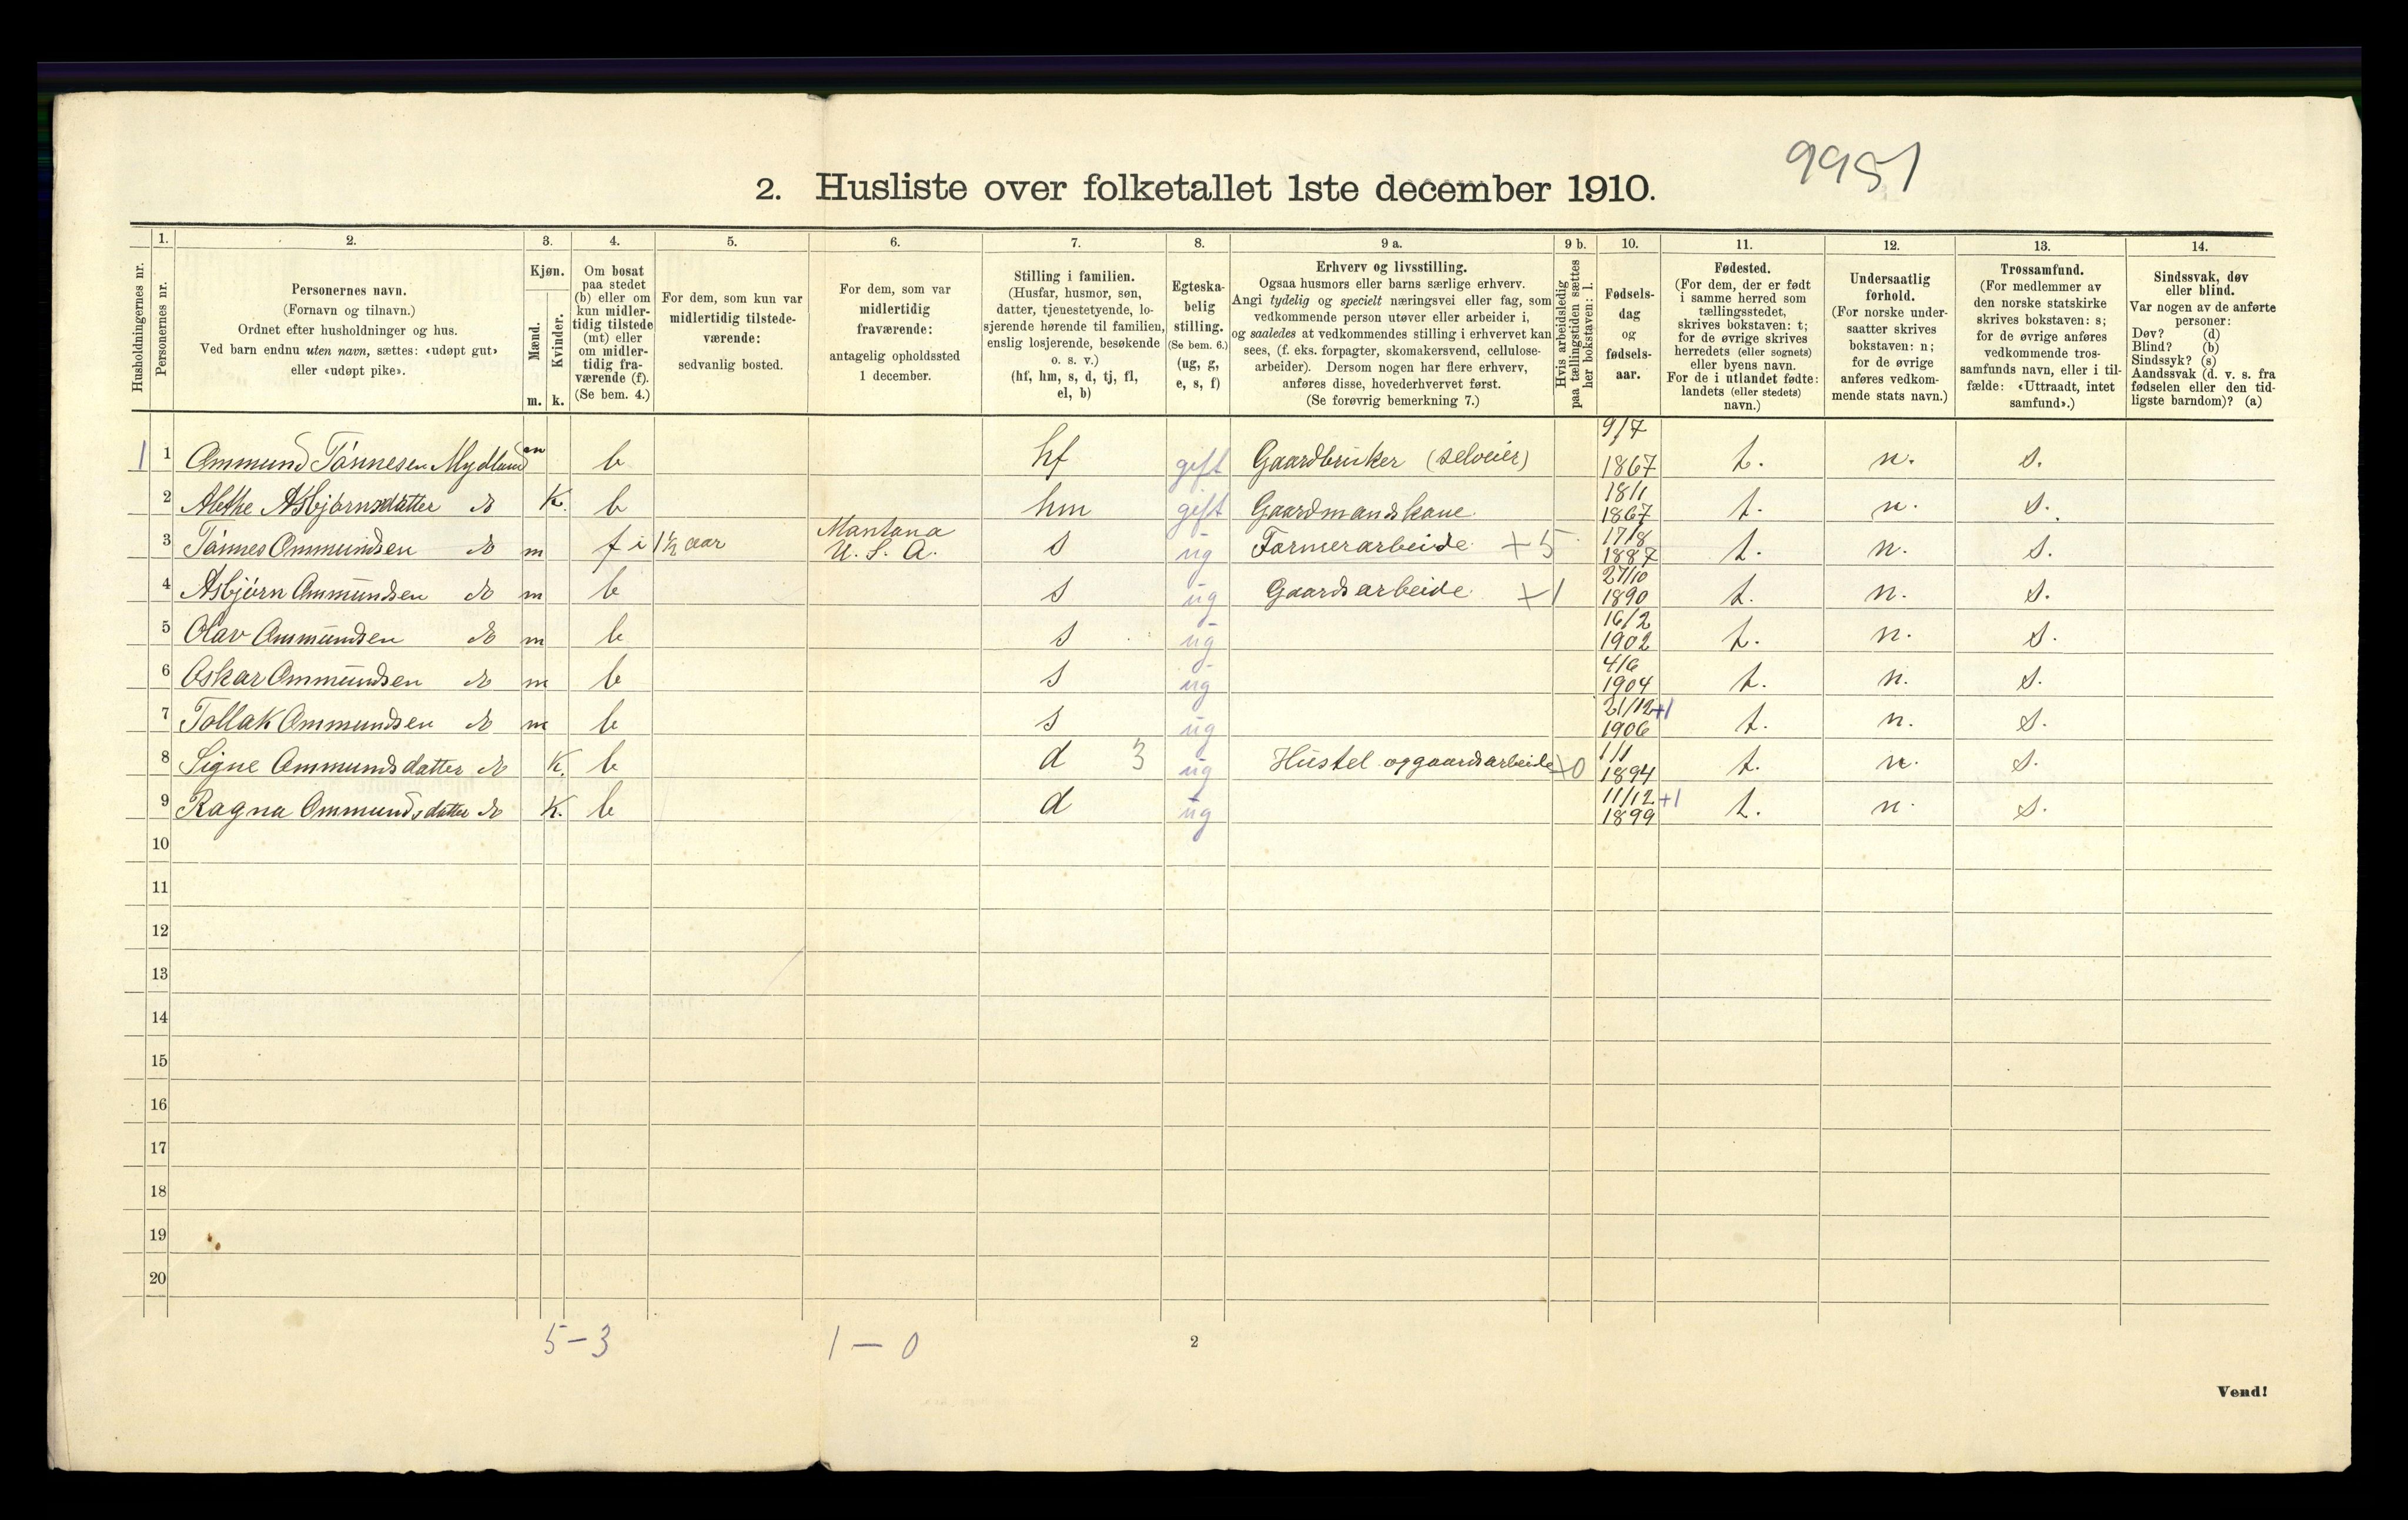 9951
2. Husliste over folketallet 1ste december 1910.
Husholdningernes nr.
1.
Personernes nr.
2.
Personernes navn.
(Fornavn og tilnavn.)
Ordnet efter husholdninger og hus.
Ved barn endnu uten navn, sættes: «udøpt gut»
eller «udøpt pike».
3.
Kjøn.
Mænd.
Kvinder.
m. k.
4.
Om bosat
paa stedet
(b) eller om
kun midler-
tidig tilstede
(mt) eller
om midler-
tidig fra-
værende (f).
(Se bem. 4.)
5.
For dem, som kun var
midlertidig tilstede-
værende:
sedvanlig bosted.
6.
For dem, som var
midlertidig
fraværende:
antagelig opholdssted
1 december.
7.
Stilling i familien.
(Husfar, husmor, søn,
datter, tjenestetyende, lo-
sjerende hørende til familien,
enslig losjerende, besøkende
o. s. v.)
(hf, hm, s, d, tj, fl,
el, b)
8.
Egteska-
belig
stilling.
(Se bem. 6.)
(ug, g,
e, s, f)
9 a.
Erhverv og livsstilling.
Ogsaa husmors eller barns særlige erhverv.
Angi tydelig og specielt næringsvei eller fag, som
vedkommende person utøver eller arbeider i,
og saaledes at vedkommendes stilling i erhvervet kan
sees, (f. eks. forpagter, skomakersvend, cellulose-
arbeider). Dersom nogen har flere erhverv,
anføres disse, hovederhvervet først.
(Se forøvrig bemerkning 7.)
9 b.
Hvis arbeidsledig
paa tællingstiden sættes
her bokstaven: l.
10.
Fødsels-
dag
og
fødsels-
aar.
11.
Fødested.
(For dem, der er født
i samme herred som
tællingsstedet,
skrives bokstaven: t;
for de øvrige skrives
herredets (eller sognets)
eller byens navn.
For de i utlandet fødte:
landets (eller stedets)
navn.)
12.
Undersaatlig
forhold.
(For norske under-
saatter skrives
bokstaven: n;
for de øvrige
anføres vedkom-
mende stats navn.)
13.
Trossamfund.
(For medlemmer av
den norske statskirke
skrives bokstaven: s;
for de øvrige anføres
vedkommende tros-
samfunds navn, eller i til-
fælde: «Uttraadt, intet
samfund».)
14.
Sindssvak, døv
eller blind.
Var nogen av de anførte
personer:
Døv? (d)
Blind? (b)
Sindssyk? (s)
Aandssvak (d. v. s. fra
fødselen eller den tid-
ligste barndom)? (a)
1 1 Ommund Tønnesen Mydland m b hf gift Gaardbruker (selveier) 9/7 1867 t. n. s.
2 Alethe Asbjørnsdatter do K. b hm gift Gaardmandskone 18/1 1867 t. n. s.
3 Tønnes Ommundsen do m f i 1½ aar Montana U. S. A. s ug Farmerarbeide +5 17/8 1887 t. n. s.
4 Asbjørn Ommundsen do m b s ug Gaardsarbeide +1 27/10 1890 t. n. s.
5 Olav Ommundsen do m b s ug 16/2 1902 t. n. s.
6 Oskar Ommundsen do m b s ug 4/6 1904 t. n. s.
7 Tollak Ommundsen do m b s ug 21/12 +1 1906 t. n. s.
8 Signe Ommundsdatter do K. b d 3 ug Hustel og gaardsarbeide +0 1/1 1894 t. n. s.
9 Ragna Ommundsdatter do K. b d ug 11/12 +1 1899 t. n. s.
10
11
12
13
14
15
16
17
18
19
20
5-3 1-0 2
Vend!